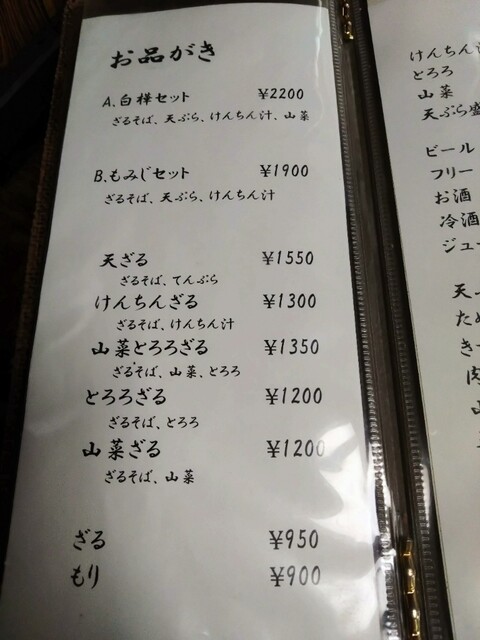 お品がき
A.白樺セット ¥2200
ざるそば、天ぷら、けんちん汁、山菜
B.もみじセット ¥1900
ざるそば、天ぷら、けんちん汁
天ざる ¥1550
ざるそば、てんぷら
けんちんざる ¥1300
ざるそば、けんちん汁
山菜とろろざる ¥1350
ざるそば、山菜、とろろ
とろろざる ¥1200
ざるそば、とろろ
山菜ざる ¥1200
ざるそば、山菜
ざる ¥950
もり ¥900
けんちん
とろろ
山菜
天ぷら盛
ビール
フリー
お酒
冷酒
ジュー